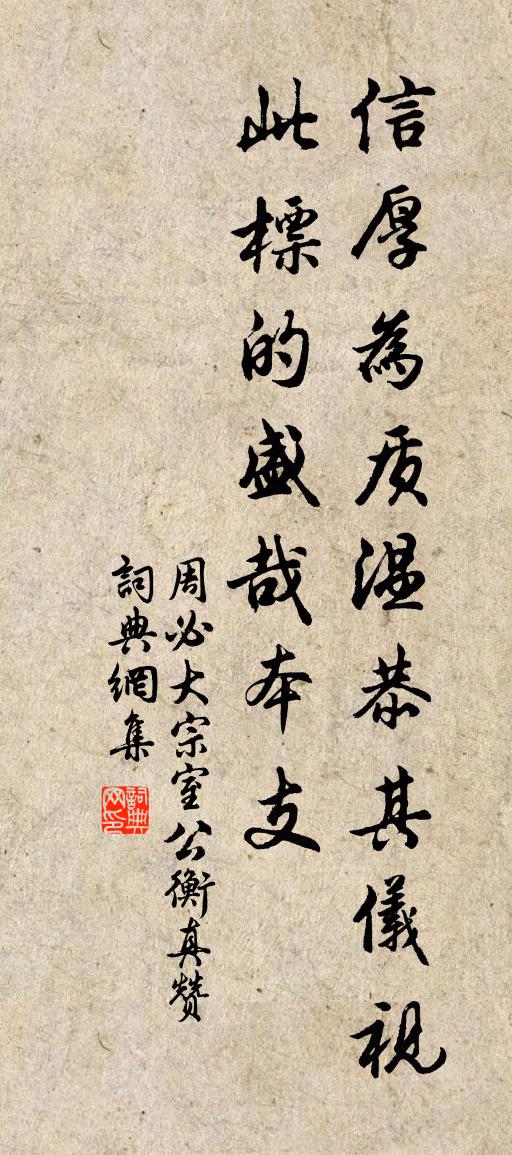 信厚為质温恭其儀視
此標的盛哉本支
周必大宗室公衡真赞
詞典網集
詞典网印